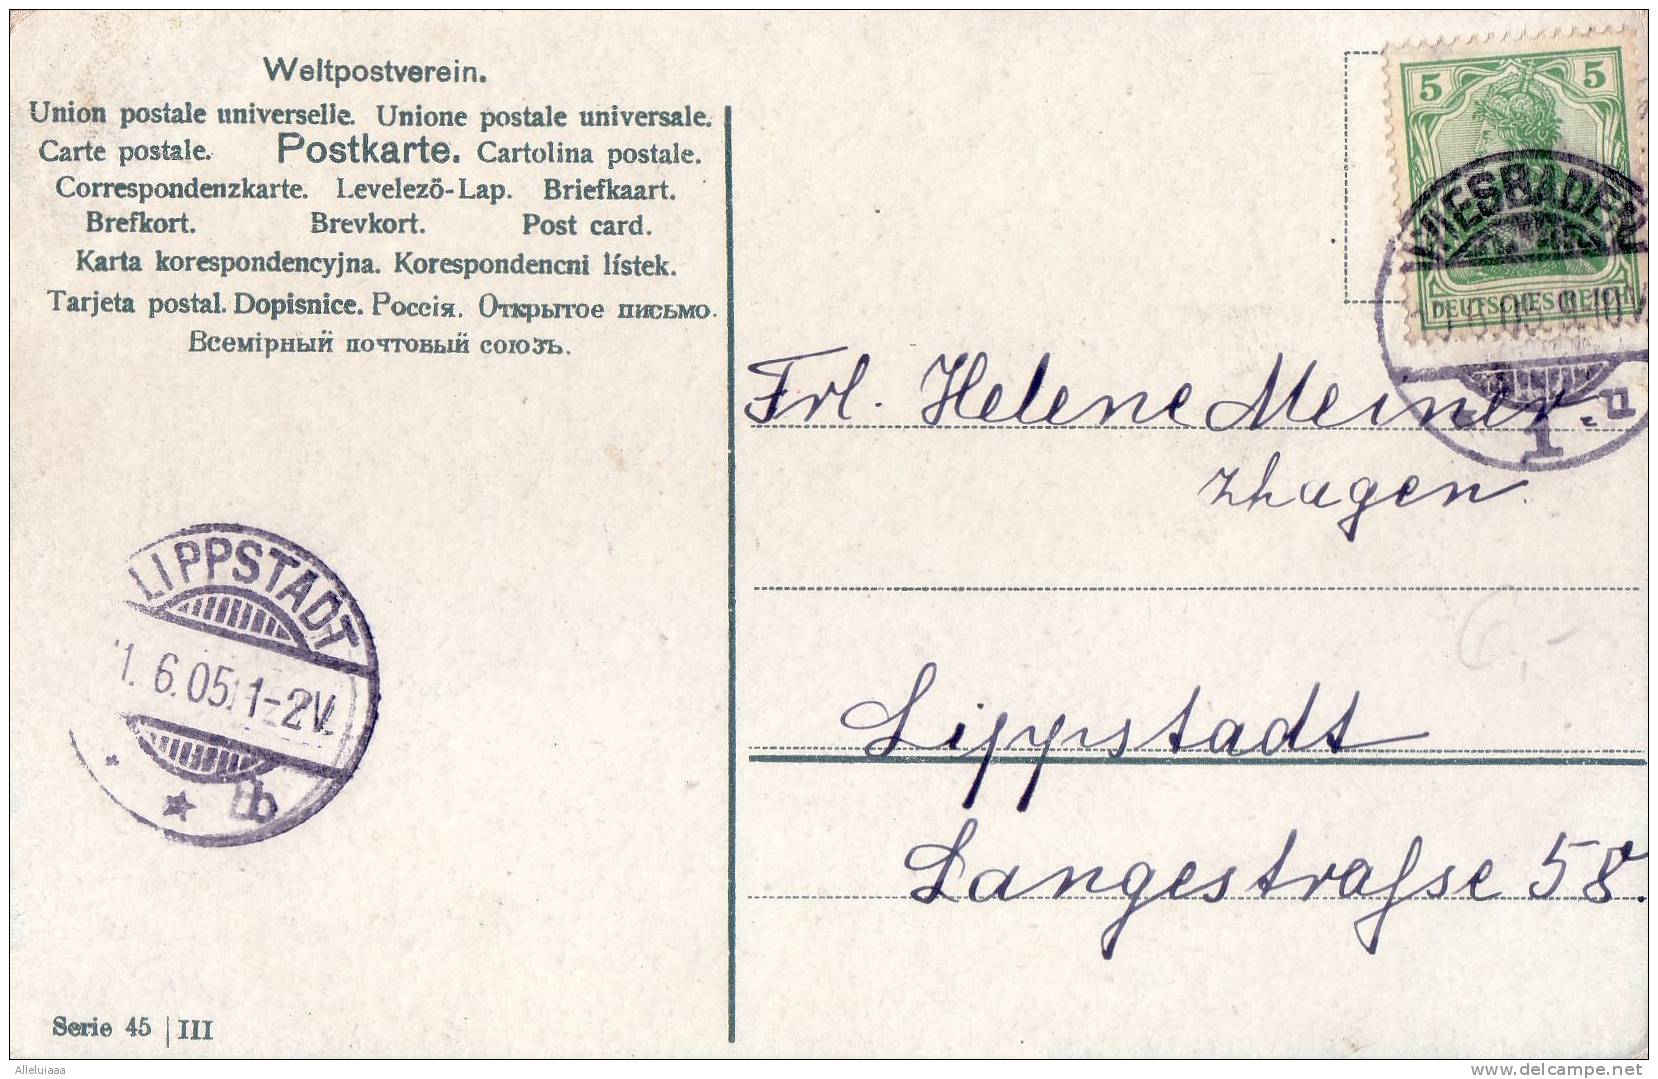 Weltpostverein.
Union postale universelle. Unione postale universale.
Carte postale. Postkarte. Cartolina postale.
Correspondenzkarte. Levelező-Lap. Briefkaart.
Brefkort. Brevkort. Post card.
Karta korespondencyjna. Korespondencni lístek.
Tarjeta postal. Dopisnice. Россія. Открытое письмо.
Всемірный почтовый союзъ.
5 5
DEUTSCHES REICH
WIESBADEN
1
Frl. Helene Meiner
zhagen
Lippstadt
Langestraſse 58.
6,-
LIPPSTADT
1. 6. 05 1-2V.
* bb
Serie 45 | III
Alleluiaaa
www.delcampe.net